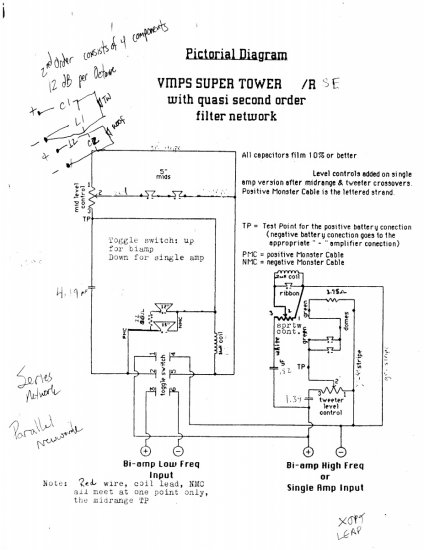 2nd Order consists of 4 components
12 dB per Octave
+ C1
TW
L1
-
+ L2
C2
WOOF
-
Pictorial Diagram
VMPS SUPER TOWER /R SE
with quasi second order
filter network
All capacitors film 10% or better
Level controls added on single
amp version after midrange & tweeter crossovers.
Positive Monster Cable is the lettered strand.
5"
mids
mid level
control
TP
TP = Test Point for the positive battery conection
(negative battery conection goes to the
appropriate " - " amplifier conection)
PMC = positive Monster Cable
NMC = negative Monster Cable
Toggle switch: up
for biamp
Down for single amp
ribbon
green
green
domes
3
2
1
sprtw
cont.
white
TP
12"
15"
PMC
NMC
coil
toggle switch
1
2
3
4
5
6
uF
1
2
3
tweeter
level
control
stripe
+
-
+
-
Bi-amp Low Freq
Input
Bi-amp High Freq
or
Single Amp Input
Series
Network
Parallel
Note: Red wire, coil lead, NMC
all meet at one point only,
the midrange TP
XOPT
LEAP